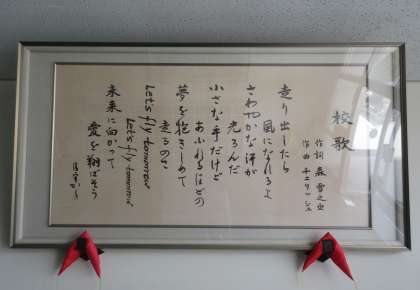 校歌
作詞 森雪之丞
作曲 チエリッシュ
走り出したら
風になれるよ
さわやかな汗が
光るんだ
小さな手だけど
あふれるほどの
夢を抱きしめて
走るのさ
Let's fly tomorrow
Let's fly tomorrow
未来に向かって
愛を翔ばそう